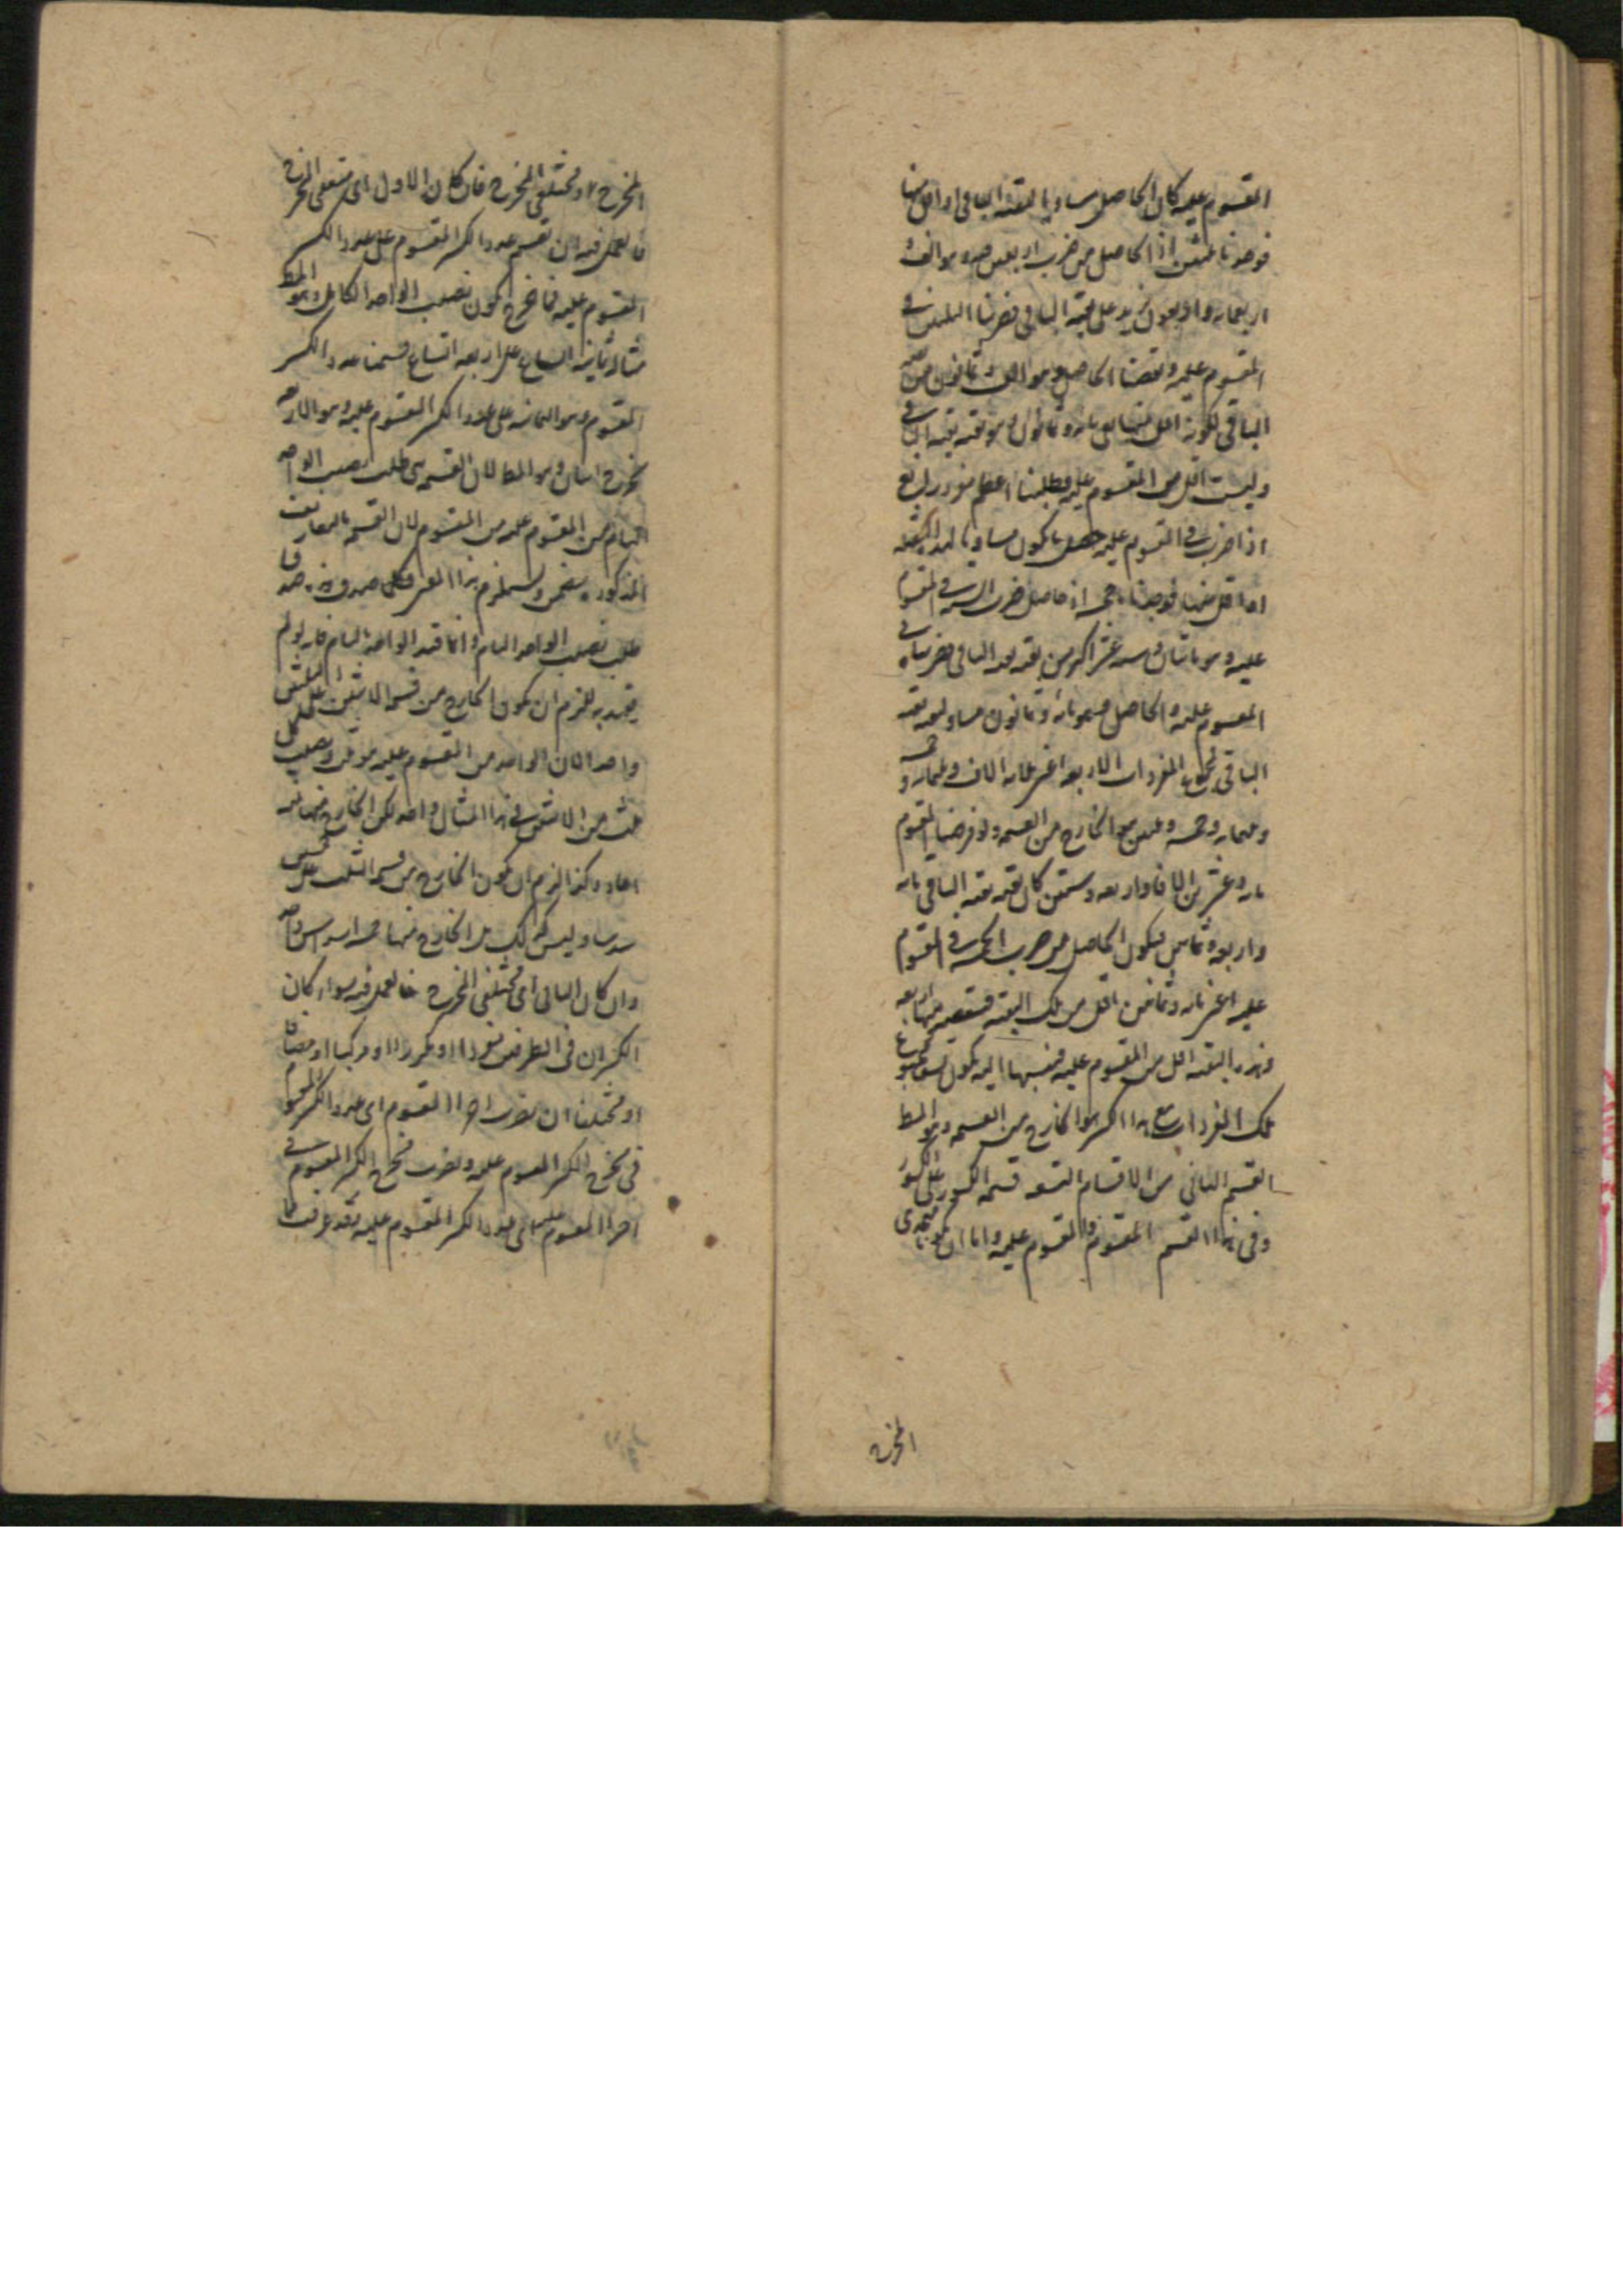 المقسوم عليه كان الحاصل مساويا لبقية الباقى او اقل منها
فوجدنا ثلثين اذ الحاصل من ضرب اربعين فيه وهو الف و
اربعمائة واربعون يزيد على بقية الباقى فضربنا الثلثين فى
المقسوم عليه ونقصنا الحاصل وهو الف وثمانون من
الباقى لكونه اقل منها بقى مائة وثمانون وهو بقية بقية الباقى
وليست اقل من المقسوم عليه فطلبنا اعظم مفرد رابع
اذا ضرب فى المقسوم عليه حصل ما يكون مساويا لهذا البقية
او اقل منها فوجدنا خمسة اذ حاصل ضرب الستة فى المقسوم
عليه وهو مائتان وستة عشر اكثر من بقية بقية الباقى فضربناه
المقسوم عليه والحاصل فيه مائة وثمانون مساو لبقية بقية
الباقى فمجموع المفردات الاربعة اعنى ثلاثة الاف وثلثمائة و
وثلثمائة وخمسة وثلثين هو الخارج من القسمة ولو فرضنا المقسوم
مائة وعشرين الفا واربعة وستين كان بقية بقية الباقى مائة
واربعة وثمانين فيكون الحاصل من ضرب الخمسة فى المقسوم
عليه اعنى مائة وثمانين اقل من تلك البقية فتنقصه منها اربعة
وهذه البقية اقل من المقسوم عليه فننسبها اليه يكون تسعا فمجموع
تلك المفردات مع هذا الكسر هو الخارج من القسمة وهو المط
القسم الثانى من الاقسام التسعة قسمة الكسور على الكسور
وفى هذا القسم المقسوم والمقسوم عليه واما ان يكونا متحدى
المخرج
المخرج او مختلفى المخرج فان كان الاول اى متفقى المخرج
فالعمل فيه ان تقسم عدد الكسر المقسوم على عدد الكسر
المقسوم عليه فما خرج يكون نصيب الواحد الكامل وهو المط
مثاله ثمانية اتساع على اربعة اتساع قسمنا عدد الكسر
المقسوم وهو الثمانية على عدد الكسر المقسوم عليه وهو الاربعة
خرج اثنان وهو المط لان القسمة هى طلب نصيب الواحد
التام من المقسوم عليه من المقسوم لان القسمة بالتعاريف
المذكورة يتضمن ويستلزم هذا المعنى فكلما صدق هذه صدق
طلب نصيب الواحد التام وانما قيد الواحد بالتام فانه لو لم
يقيد به للزم ان يكون الخارج من قسمة الثلثين على ثلثى
واحد لان الواحد من المقسوم عليه هو ثلث ونصيب كل
ثلث من الاثنين فى هذا المثال واحد لكن الخارج منها ثلثة
احاد وكذا لزم ان يكون الخارج من قسمة الثلث على خمس
سدسا وليس كذلك بل الخارج منها خمسة اسداس واحد
وان كان الثانى اى مختلفى المخرج فالعمل فيه سواء كان
الكسران فى الطرفين مفردا او مكررا او مركبا او مضافا
او مختلفا ان تضرب اجزاء المقسوم اى عدد الكسر المقسوم
فى مخرج الكسر المقسوم عليه وتضرب مخرج الكسر المقسوم فى
اجزاء المقسوم عليه اى عدد الكسر المقسوم عليه فقد عرفت ما